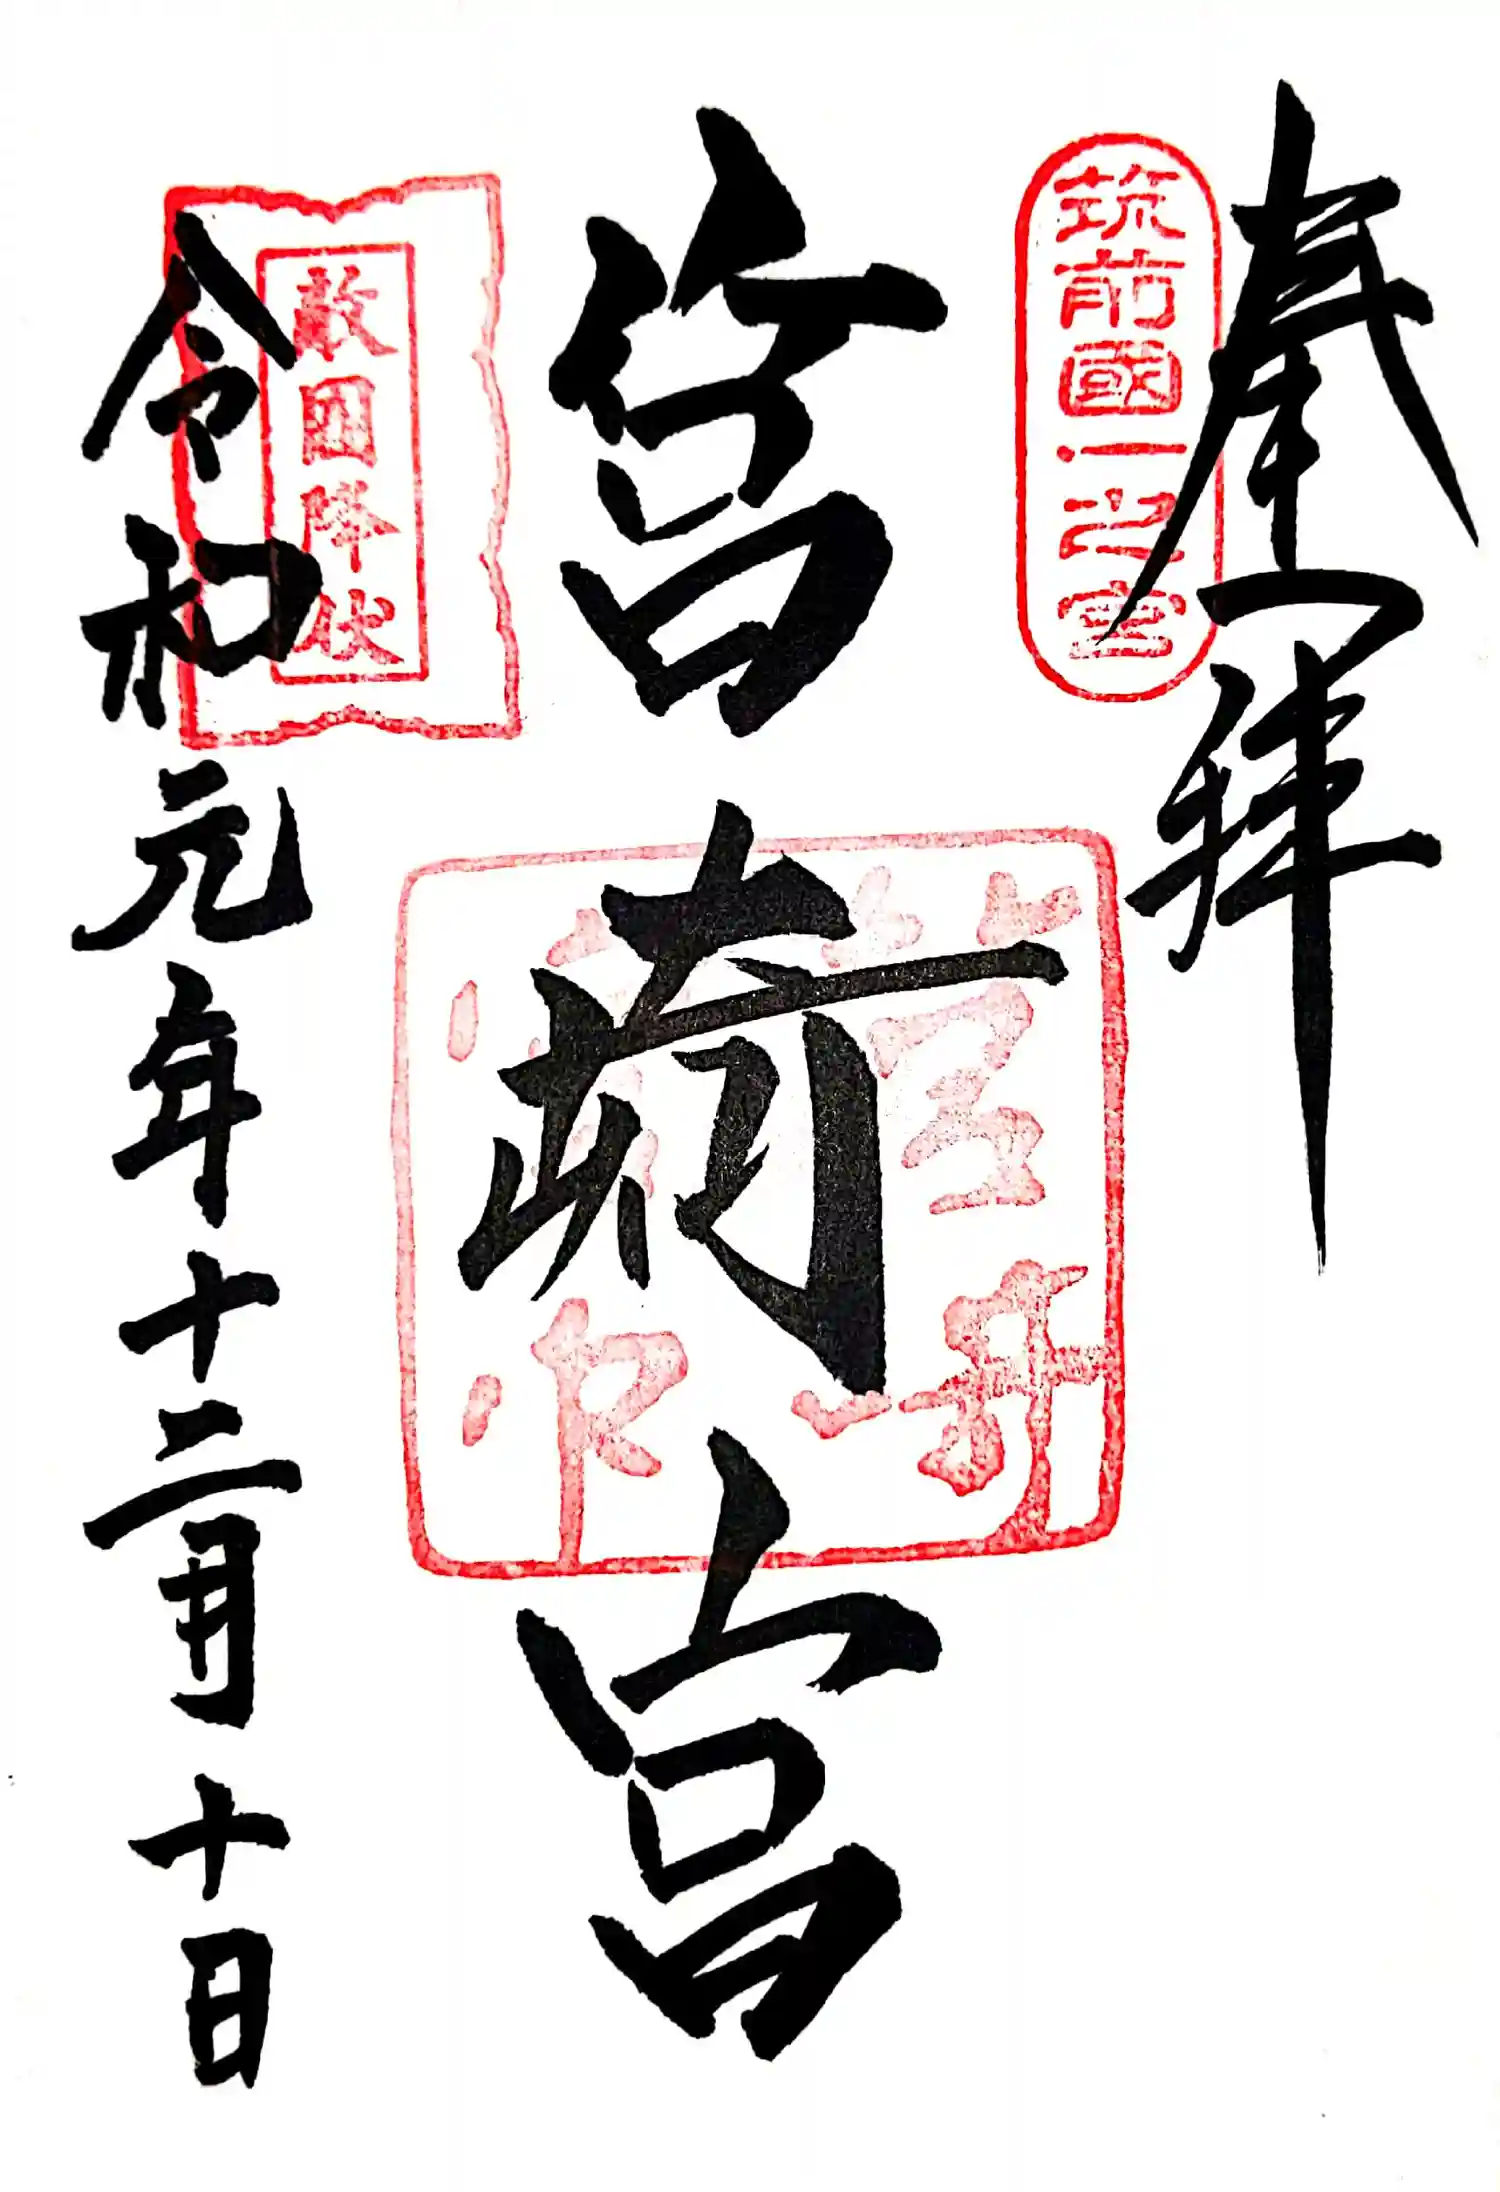 奉拝
筑前國一之宮
筥崎宮
筥崎宮印
敵國降伏
令和元年十二月十日